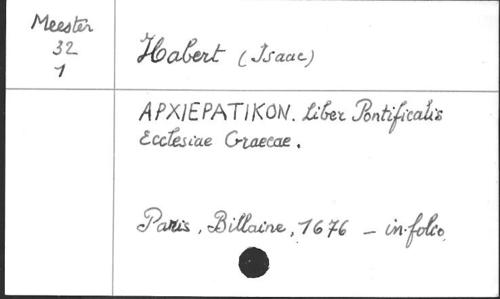 Meester
32
1
Habert (Isaac)
ΑΡΧΙΕΡΑΤΙΚΟΝ. Liber Pontificalis
Ecclesiae Graecae.
Paris, Billaine, 1676 – in-folio